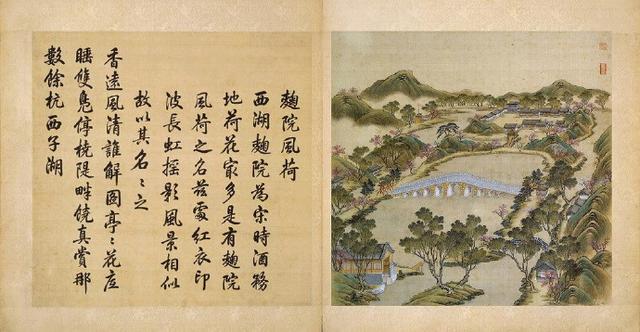 麯院風荷
西湖麯院為宋時酒務
地荷花㝡多是有麯院
風荷之名兹處紅衣印
波長虹摇影風景相似
故以其名〻之
香遠風清誰解圖亭〻花底
睡雙鳧停橈隄畔饒真賞那
數餘杭西子湖